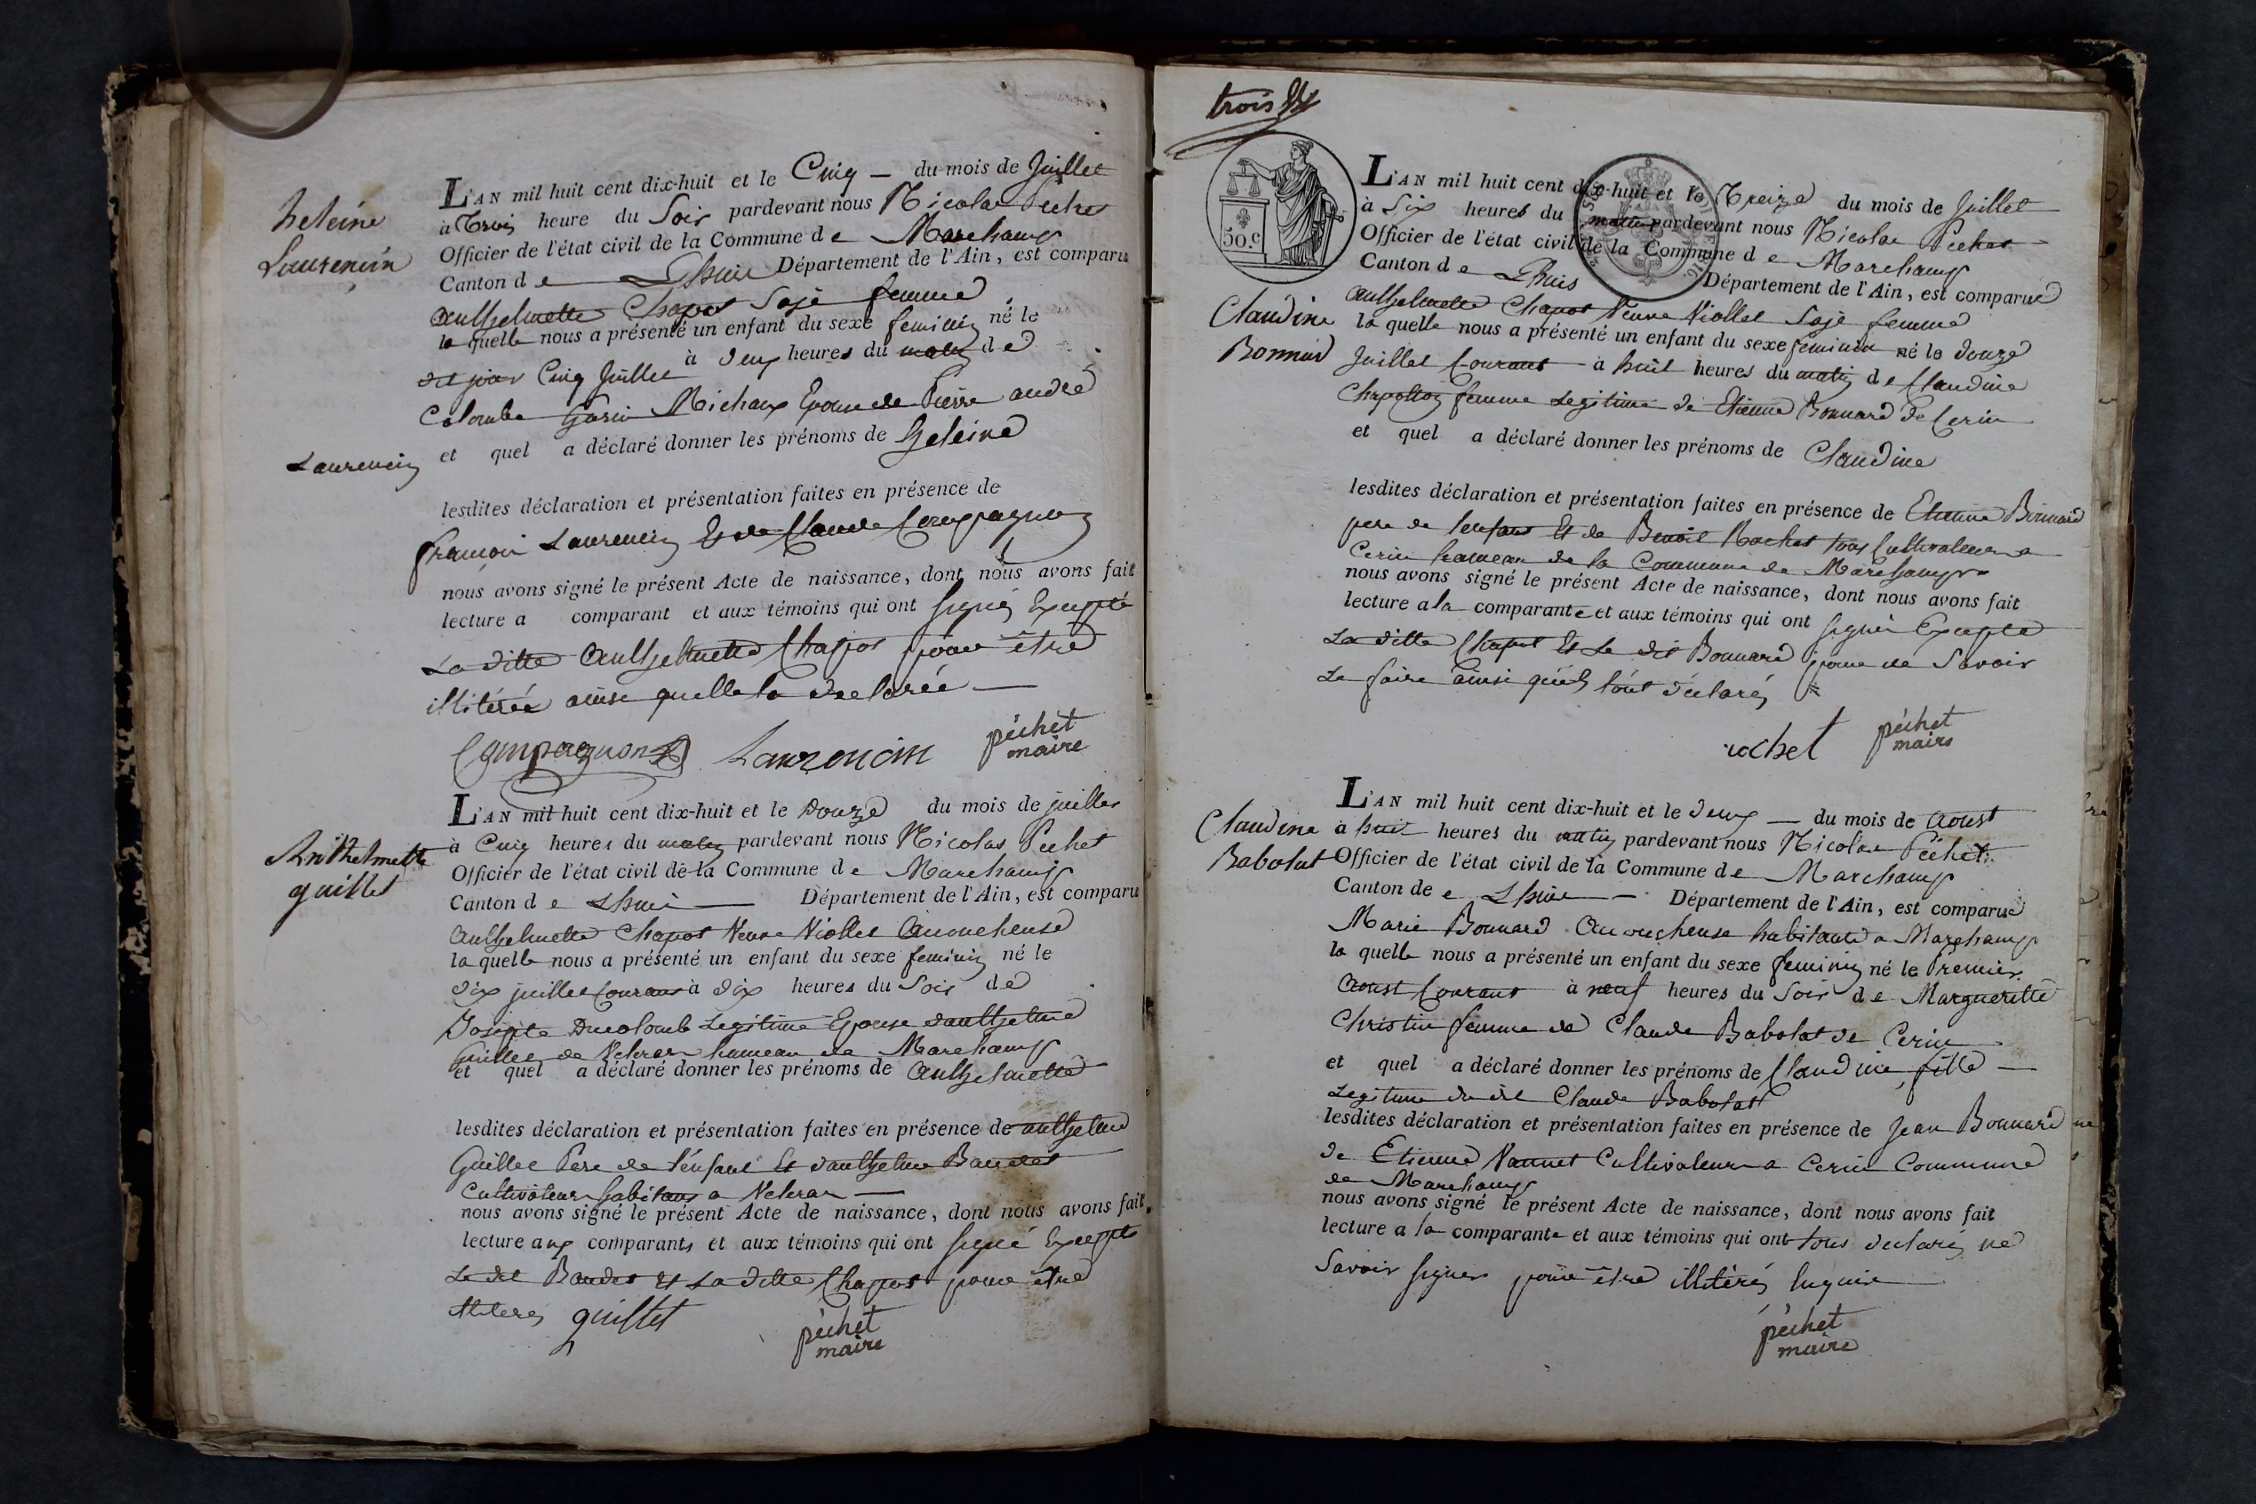 heleine
Laurencin
L'AN mil huit cent dix-huit et le Cinq — du mois de Juillet
à Trois heure du Soir pardevant nous Nicolas Pechet
Officier de l'état civil de la Commune de Marchamp
Canton de Lhuis Département de l'Ain, est comparu
anthelmette Chapot Sage femme
la quelle nous a présenté un enfant du sexe feminin né le
dit jour Cinq Juillet à deux heures du matin de
Colombe Garin Michaux Epouse de Pierre andré
Laurencin
et quel a déclaré donner les prénoms de heleine
lesdites déclaration et présentation faites en présence de
françois Laurencin Et de Claude Compagnon
nous avons signé le présent Acte de naissance, dont nous avons fait
lecture a comparant et aux témoins qui ont signés Excepté
La ditte anthelmette Chapot pour être
illitérée ainsi quelle la declarée —
Compagnon Laurencin péchet
maire
Anthelmette
guillet
L'AN mil huit cent dix-huit et le Douze du mois de juillet
à Cinq heures du matin pardevant nous Nicolas Pechet
Officier de l'état civil de la Commune de Marchamp
Canton de Lhuis — Département de l'Ain, est comparu
anthelmette Chapot Veuve Viollet accoucheuse
la quelle nous a présenté un enfant du sexe feminin né le
dix juillet Courant à dix heures du Soir de
Josepte Ducolomb Legitime Epouse danthelme
Guillet de Velerar hameau de Marchamp
et quel a déclaré donner les prénoms de anthelmette
lesdites déclaration et présentation faites en présence de anthelme
Guillet Pere de l'enfant Et danthelme Baudet
Cultivateur habitans a Velerar —
nous avons signé le présent Acte de naissance, dont nous avons fait
lecture aux comparants et aux témoins qui ont signé Excepté
Le dit Baudet et La ditte Chapot pour être
illiterés guillet
péchet
maire
trois
50.c
Claudine
Bonnard
L'AN mil huit cent dix-huit et le Treize du mois de Juillet
à Six heures du matin pardevant nous Nicolas Pechet
Officier de l'état civil de la Commune de Marchamp
Canton de Lhuis Département de l'Ain, est comparue
anthelmette Chapot Veuve Viollet Sage femme
la quelle nous a présenté un enfant du sexe féminin né le douze
Juillet Courant à huit heures du matin de Claudine
Chapotton femme Legitime de Etienne Bonnard de Cerin
et quel a déclaré donner les prénoms de Claudine
lesdites déclaration et présentation faites en présence de Etienne Bonnard
pere de lenfant Et de Benoit Rochet tous Cultivateur a
Cerin hameau de la Commune de Marchamp
nous avons signé le présent Acte de naissance, dont nous avons fait
lecture a la comparante et aux témoins qui ont signés Excepté
La ditte Chapot Et Le dit Bonnard pour ne Savoir
Le faire ainsi quils l'ont déclarés
rochet péchet
maire
Claudine
Babolat
L'AN mil huit cent dix-huit et le deux — du mois de Aoust
à huit heures du matin pardevant nous Nicolas Péchet
Officier de l'état civil de la Commune de Marchamp
Canton de Lhuis — Département de l'Ain, est comparue
Marie Bonnard Accoucheuse habitante a Marchamp
la quelle nous a présenté un enfant du sexe feminin né le Premier
Aoust Courant à neuf heures du Soir de Margueritte
Christin femme de Claude Babolat de Cerin
et quel a déclaré donner les prénoms de Claudine fille —
Legitime du dit Claude Babolat
lesdites déclaration et présentation faites en présence de Jean Bonnard
de Etienne Vannet Cultivateur a Cerin Commune
de Marchamp
nous avons signé le présent Acte de naissance, dont nous avons fait
lecture a la comparante et aux témoins qui ont tous declarés ne
Savoir signer pour être illitérés
péchet
maire